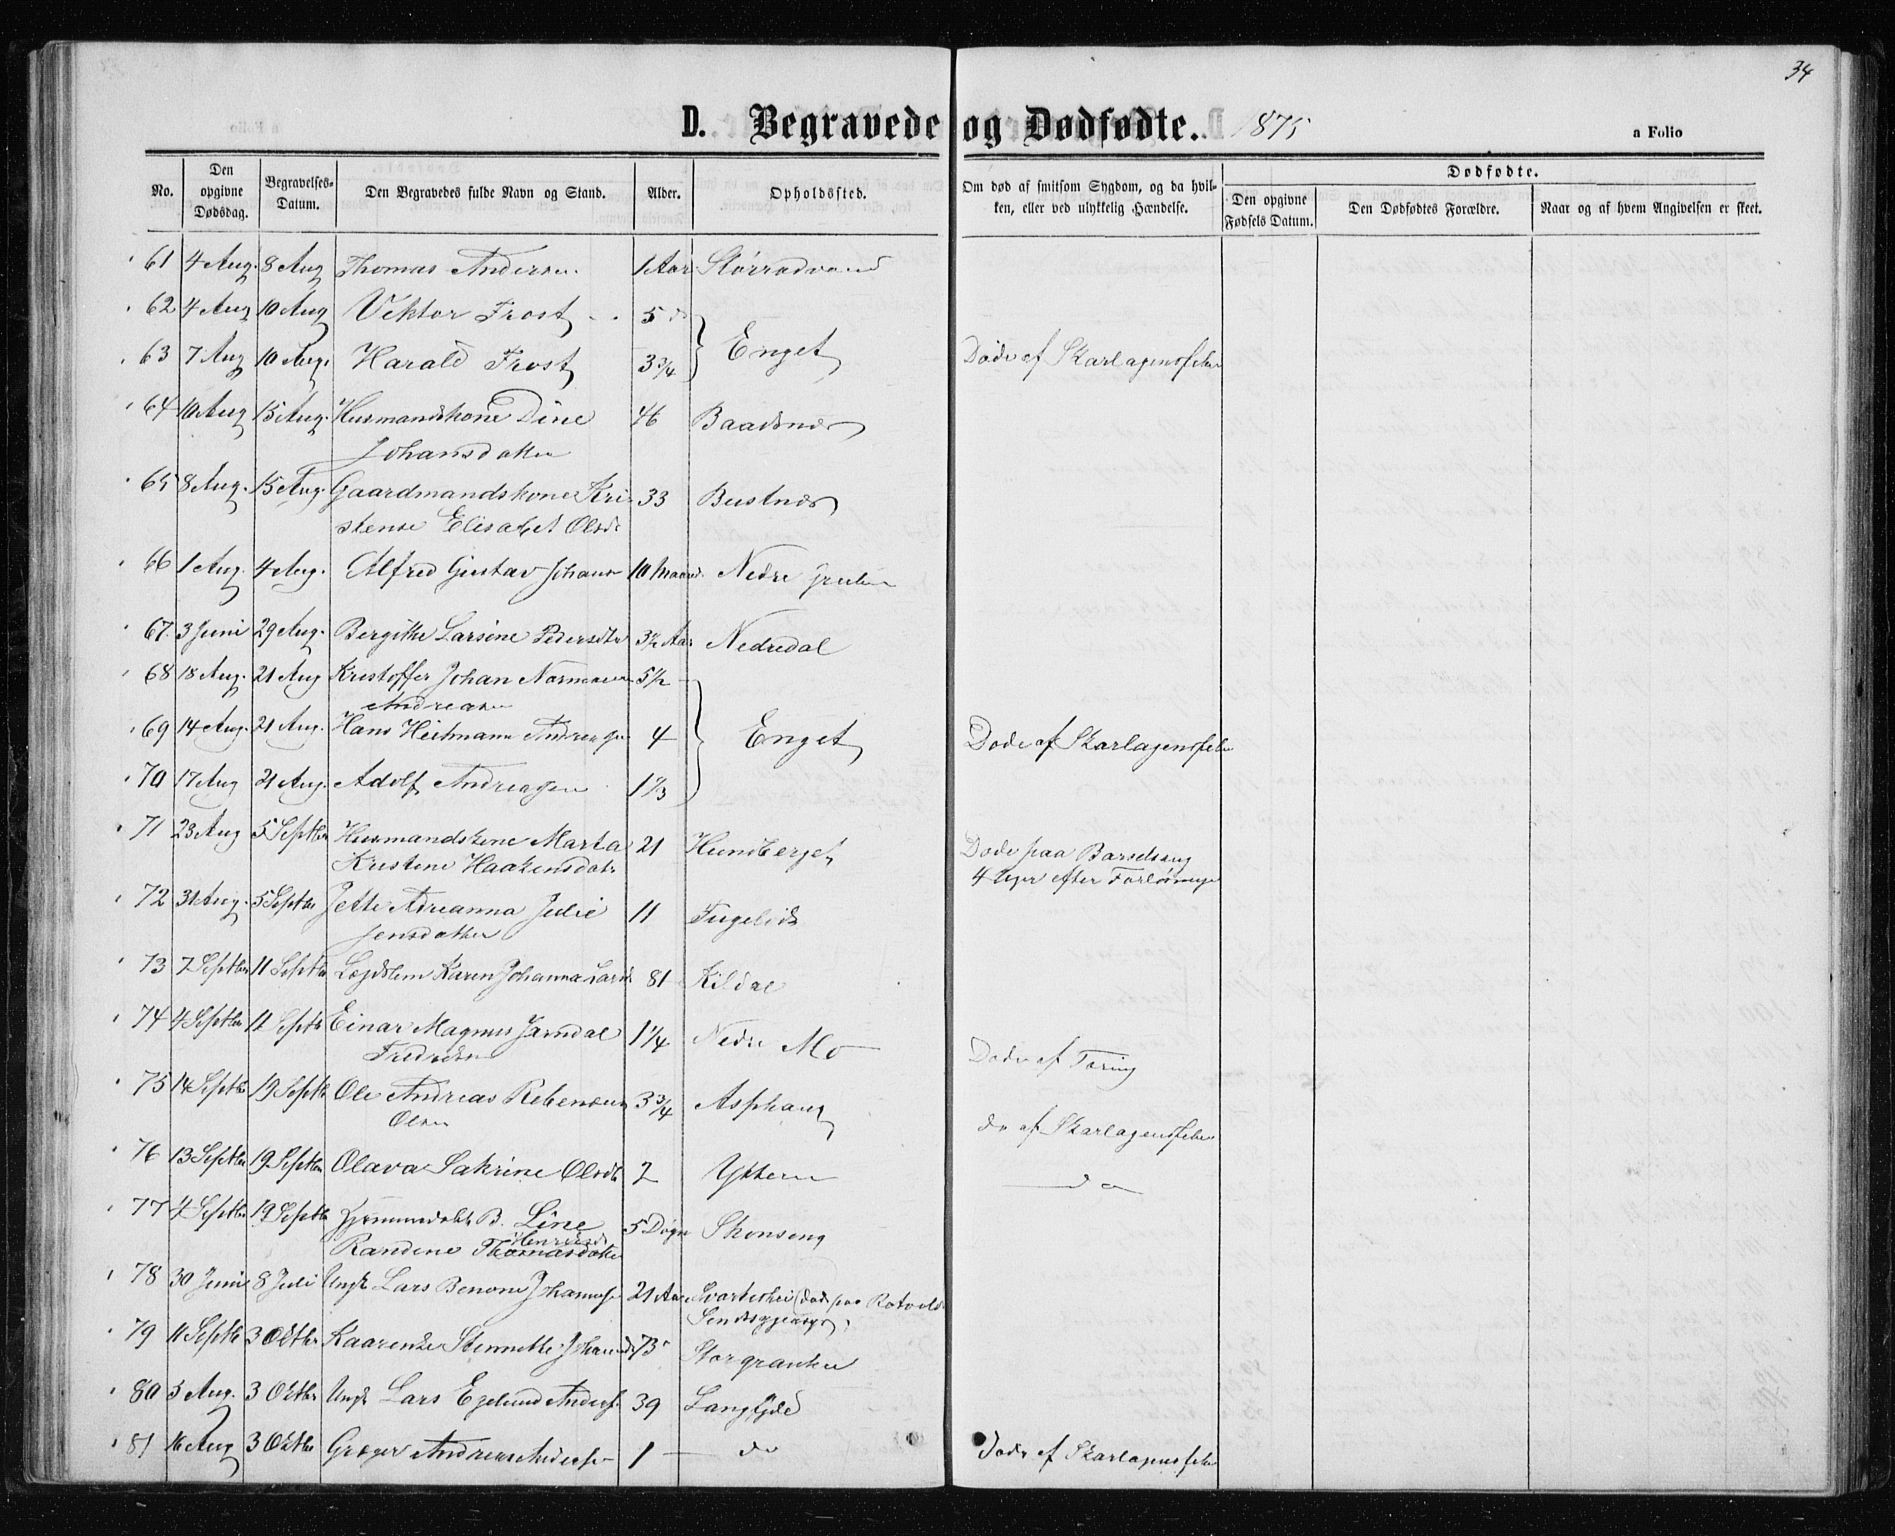 34
D. Begravede og Dødfødte. 1875
a Folio
No. Den opgivne Dødsdag. Begravelses-Datum. Den Begravedes fulde Navn og Stand. Alder. Opholdssted. Om død af smitsom Sygdom, og da hvilken, eller ved ulykkelig Hændelse. Dødfødte. Den opgivne Fødsels Datum. Den Dødfødtes Forældre. Naar og af hvem Angivelsen er skeet.
61 4 Aug. 8 Aug Thomas Andersen 1 Aar Størrodvand
62 4 Aug 10 Aug Vektor Frost 5 do
63 7 Aug 10 Aug. Harald Frost 3 3/4 Enget Døde af Skarlagensfeber
64 10 Aug 15 Aug. Husmandskone Dine 46 Baadsnes
Johansdatter
65 8 Aug. 15 Aug. Gaardmandskone Kri- 33 Bustnes
stense Elisabet Olsdt
66 1 Aug. 4 Aug. Alfred Gustav Johans 10 Maaned. Nedre Gruben
67 3 Juni 29 Aug. Bergitte Larsine Pedersdtr 3 1/2 Aar Nedredal
68 18 Aug. 21 Aug Kristoffer Johan Normann 5 1/2
Andreasen
69 14 Aug. 21 Aug. Hans Heitmann Andreasen 4 Enget Døde af Skarlagensfeber
70 17 Aug 21 Aug. Adolf Andreasen 1 1/3
71 23 Aug 5 Septbr Husmandskone Marta 21 Hundberget Døde paa Barselseng
Kristine Haakensdatr 4 Uger efter Forløsningen
72 31 Aug. 5 Septbr Jette Adrianna Julie 11 Fugelid
Jensdatter
73 7 Septbr 11 Septbr Lægdslem Karen Johanna Larsd 81 Kildal
74 4 Septbr 12 Septbr Einar Magnus Jarndal 1 1/4 Nedre Mo
Fredriksen Døde af Tæring
75 14 Septbr 19 Septbr Ole Andreas Rebensen 3 3/4 Asphaug
Olsen do af Skarlagensfeber
76 13 Septbr 19 Septbr Olava Sakrine Olsdt 2 Ytteren do
77 4 Septbr 19 Septbr Hjemmedøbt B. Line 5 Døgn Skonseng
Henriksd
Randine Thomasdatter
78 30 Juni 8 Juli Ungk Lars Benoni Johannes 21 Aar Svartishei (død paa Rotvold
Sindssygeasyl)
79 11 Septb 3 Oktbr Kaarenze Stennette Johansd 73 Storgranlien
80 5 Aug. 3 Oktbr Ungk Lars Egelund Anders. 39 Langfjeld
81 16 Aug 3 Oktbr Grøger Andreas Anders. 1 do Døde af Skarlagensfeber